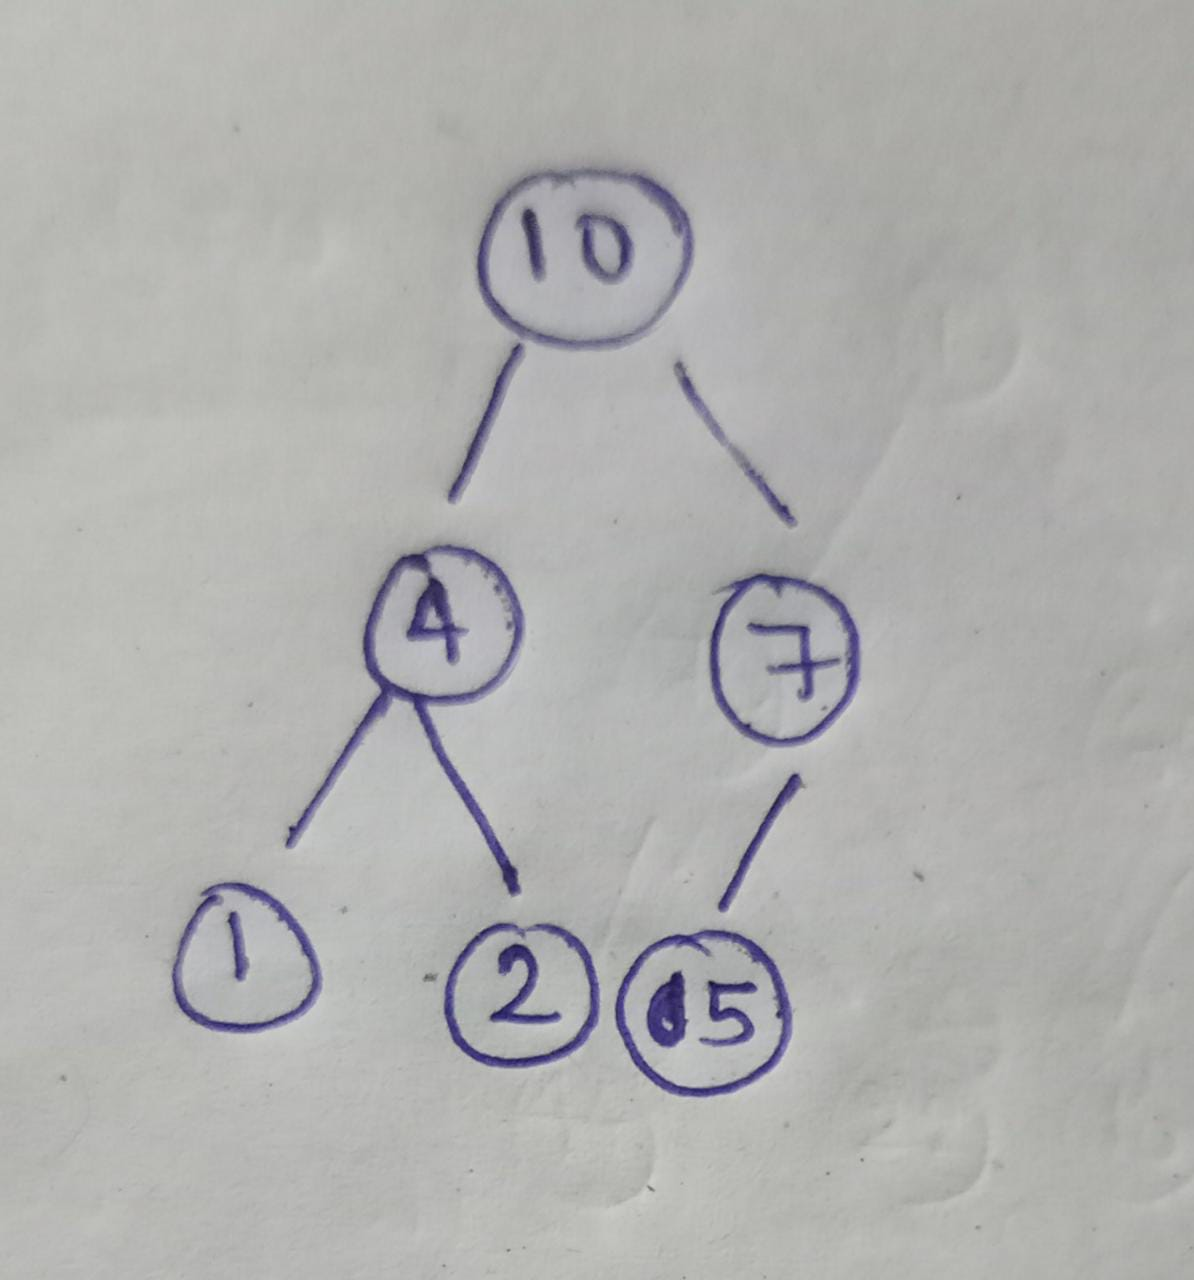 10
4 7
1 2 5